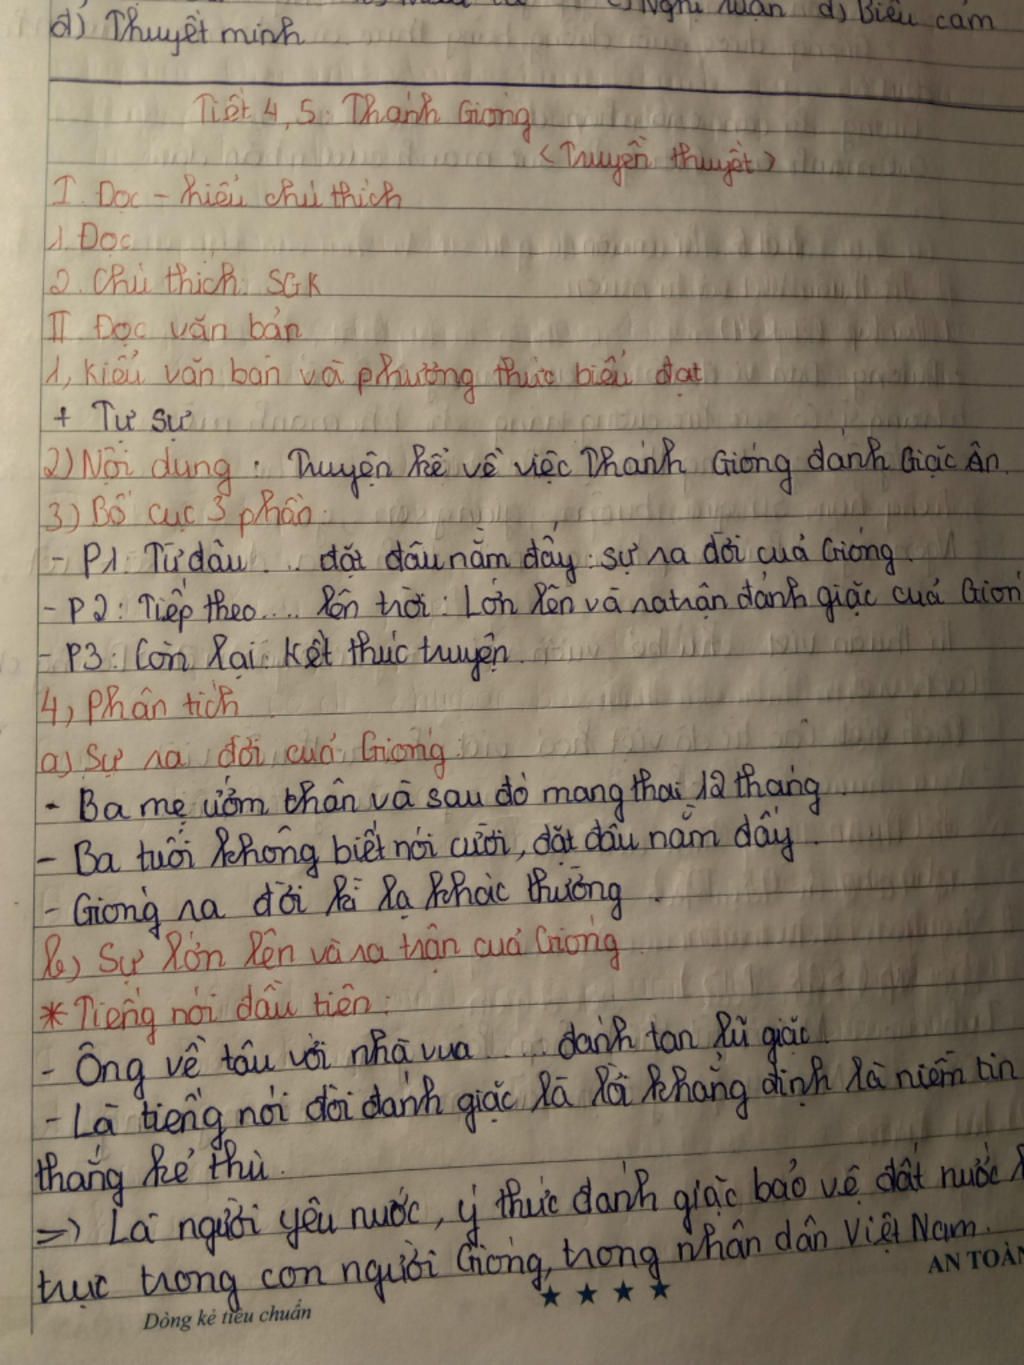 c) Nghị luận d) Biểu cảm
d) Thuyết minh
Tiết 4, 5: Thánh Gióng
<Truyền thuyết>
I. Đọc - hiểu chú thích
1. Đọc
2. Chú thích: SGK
II Đọc văn bản
1, Kiểu văn bản và phương thức biểu đạt
+ Tự sự
2) Nội dung : Truyện kể về việc Thánh Gióng đánh Giặc Ân.
3) Bố cục 3 phần:
- P1: Từ đầu .... đặt đâu nằm đấy : sự ra đời của Gióng.
- P2: Tiếp theo.... lên trời : Lớn lên và ra trận đánh giặc của Gión
- P3: Còn lại: Kết thúc truyện.
4, Phân tích
a) Sự ra đời của Gióng:
- Bà mẹ ướm chân và sau đó mang thai 12 tháng.
- Ba tuổi không biết nói cười, đặt đâu nằm đấy.
- Gióng ra đời kì lạ khác thường.
b) Sự lớn lên và ra trận của Gióng
* Tiếng nói đầu tiên:
- Ông về tâu với nhà vua .... đánh tan lũ giặc.
- Là tiếng nói đòi đánh giặc là lời khẳng định là niềm tin
thắng kẻ thù.
=> Là người yêu nước, ý thức đánh giặc bảo vệ đất nước
trực trong con người Gióng, trong nhân dân Việt Nam.
AN TOÀN
Dòng kẻ tiêu chuẩn